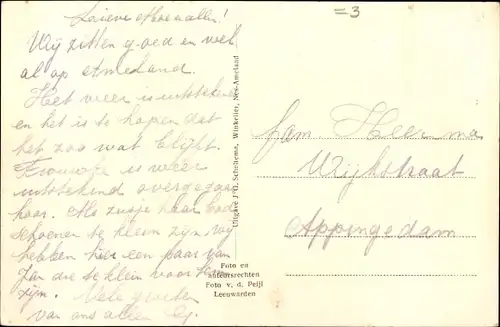 Lieve Moe en allen!
Wij zitten goed en wel
al op Ameland.
Het weer is uitstekend
en het is te hopen dat
het zoo wat blijft.
is weer
uitstekend overgegaan
hoor. Als zusje haar bad
schoenen te kleen zijn, wij
hebben hier een paar van
Jan die te klein voor hem
zijn. Vele groeten
van ons allen
=3
Fam Heerma
Wijkstraat
Appingedam
Uitgave J. O. Scheltema, Winkelier, Nes-Ameland
Foto en
auteursrechten
Foto v. d. Peijl
Leeuwarden